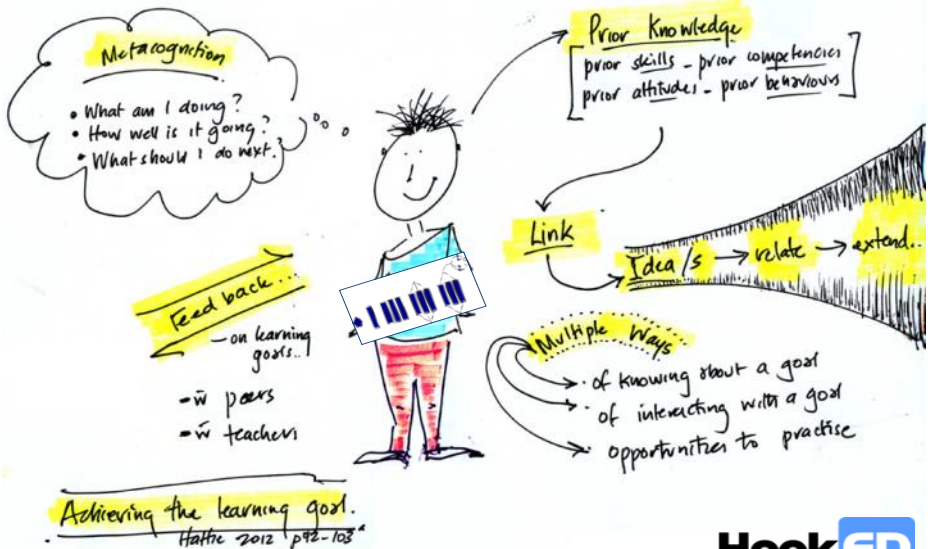 Metacognition
• What am I doing?
• How well is it going?
• What should I do next.
Prior Knowledge
[prior skills - prior competencies
prior attitudes - prior behaviours]
Link
Idea/s → relate → extend...
Feedback...
- on learning
goals..
- w̄ peers
- w̄ teachers
Multiple Ways
· of knowing about a goal
· of interacting with a goal
· opportunities to practise
Achieving the learning goal.
Hattie 2012 p92-103
HookED